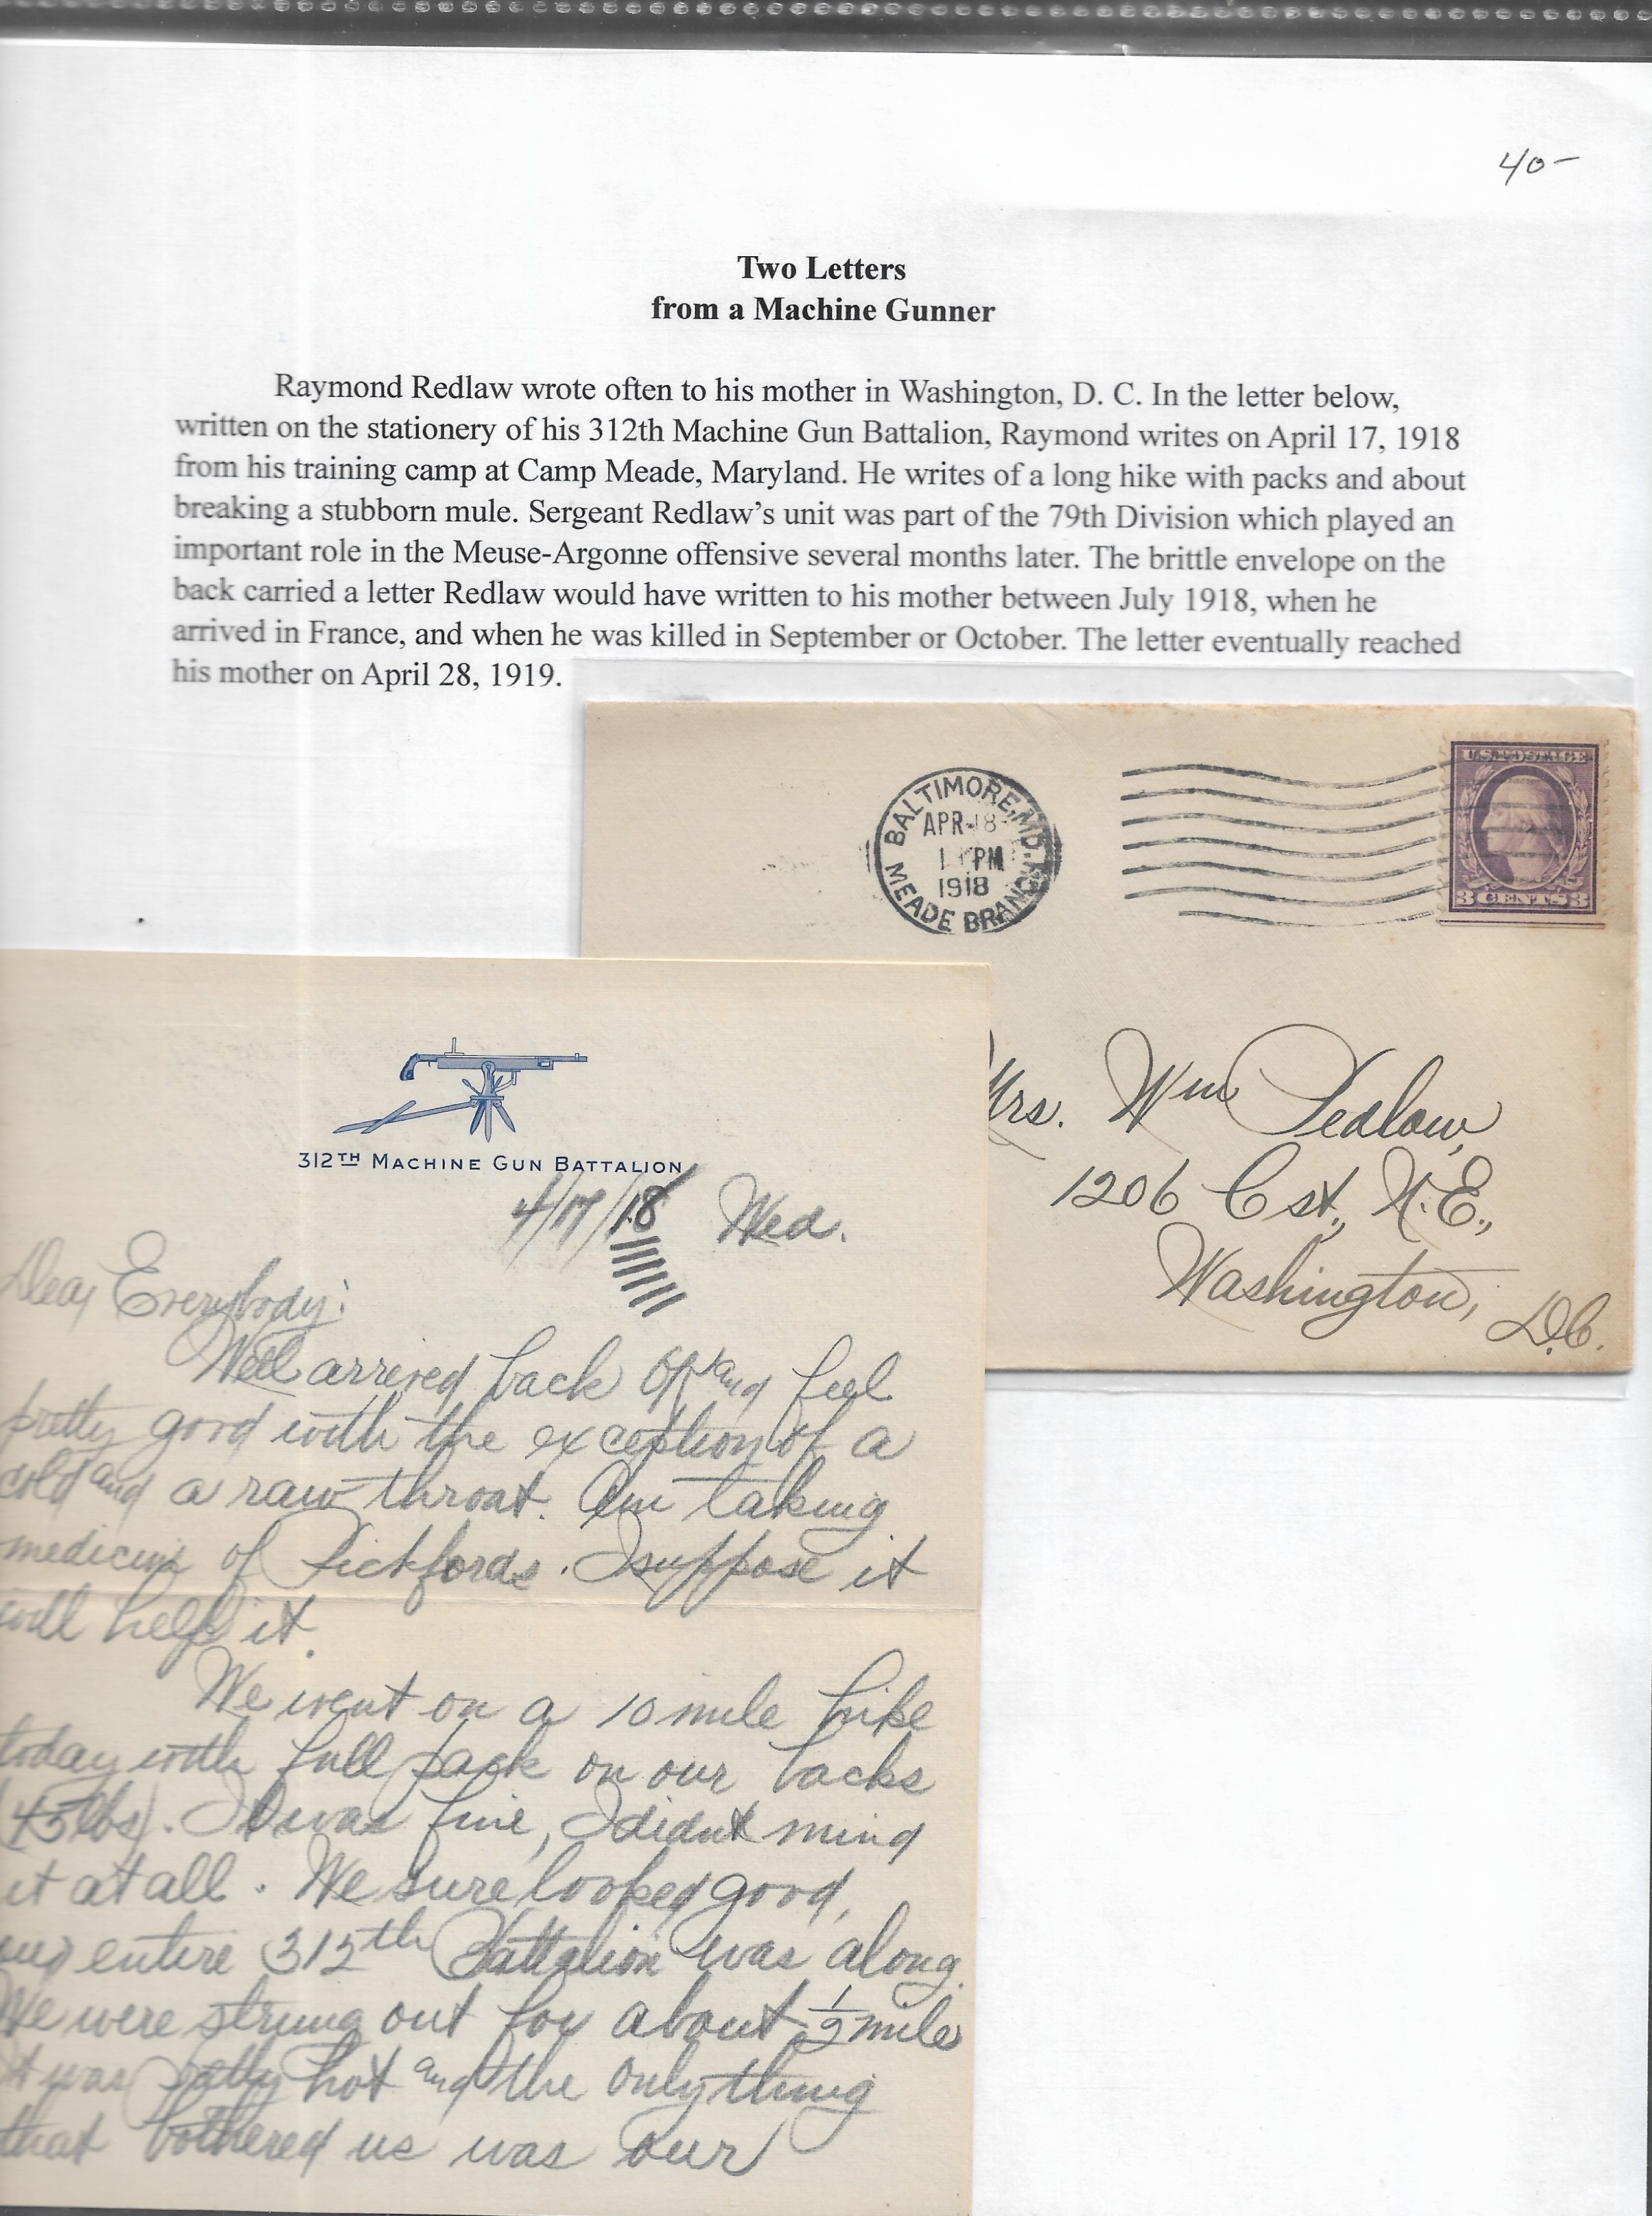 40-
Two Letters
from a Machine Gunner
Raymond Redlaw wrote often to his mother in Washington, D. C. In the letter below,
written on the stationery of his 312th Machine Gun Battalion, Raymond writes on April 17, 1918
from his training camp at Camp Meade, Maryland. He writes of a long hike with packs and about
breaking a stubborn mule. Sergeant Redlaw’s unit was part of the 79th Division which played an
important role in the Meuse-Argonne offensive several months later. The brittle envelope on the
back carried a letter Redlaw would have written to his mother between July 1918, when he
arrived in France, and when he was killed in September or October. The letter eventually reached
his mother on April 28, 1919.
BALTIMORE, MD.
MEADE BRANCH
APR 18
PM
1918
U.S. POSTAGE
3 CENTS 3
Mrs. Wm Pedlow,
1206 C st., N.E.,
Washington,
D.C.
312TH MACHINE GUN BATTALION
4/17/18 Wed.
Dear Everybody:
Well arrived back OK and feel
pretty good with the exception of a
cold and a raw throat. Am taking
medicine of Pickfords. I suppose it
will help it.
We went on a 10 mile hike
today with full pack on our backs
(45 lbs). It was fine, I didnt mind
it at all. We sure looked good,
our entire 312th Battalion was along.
We were strung out for about 1/2 mile
It was pretty hot and the only thing
that bothered us was our